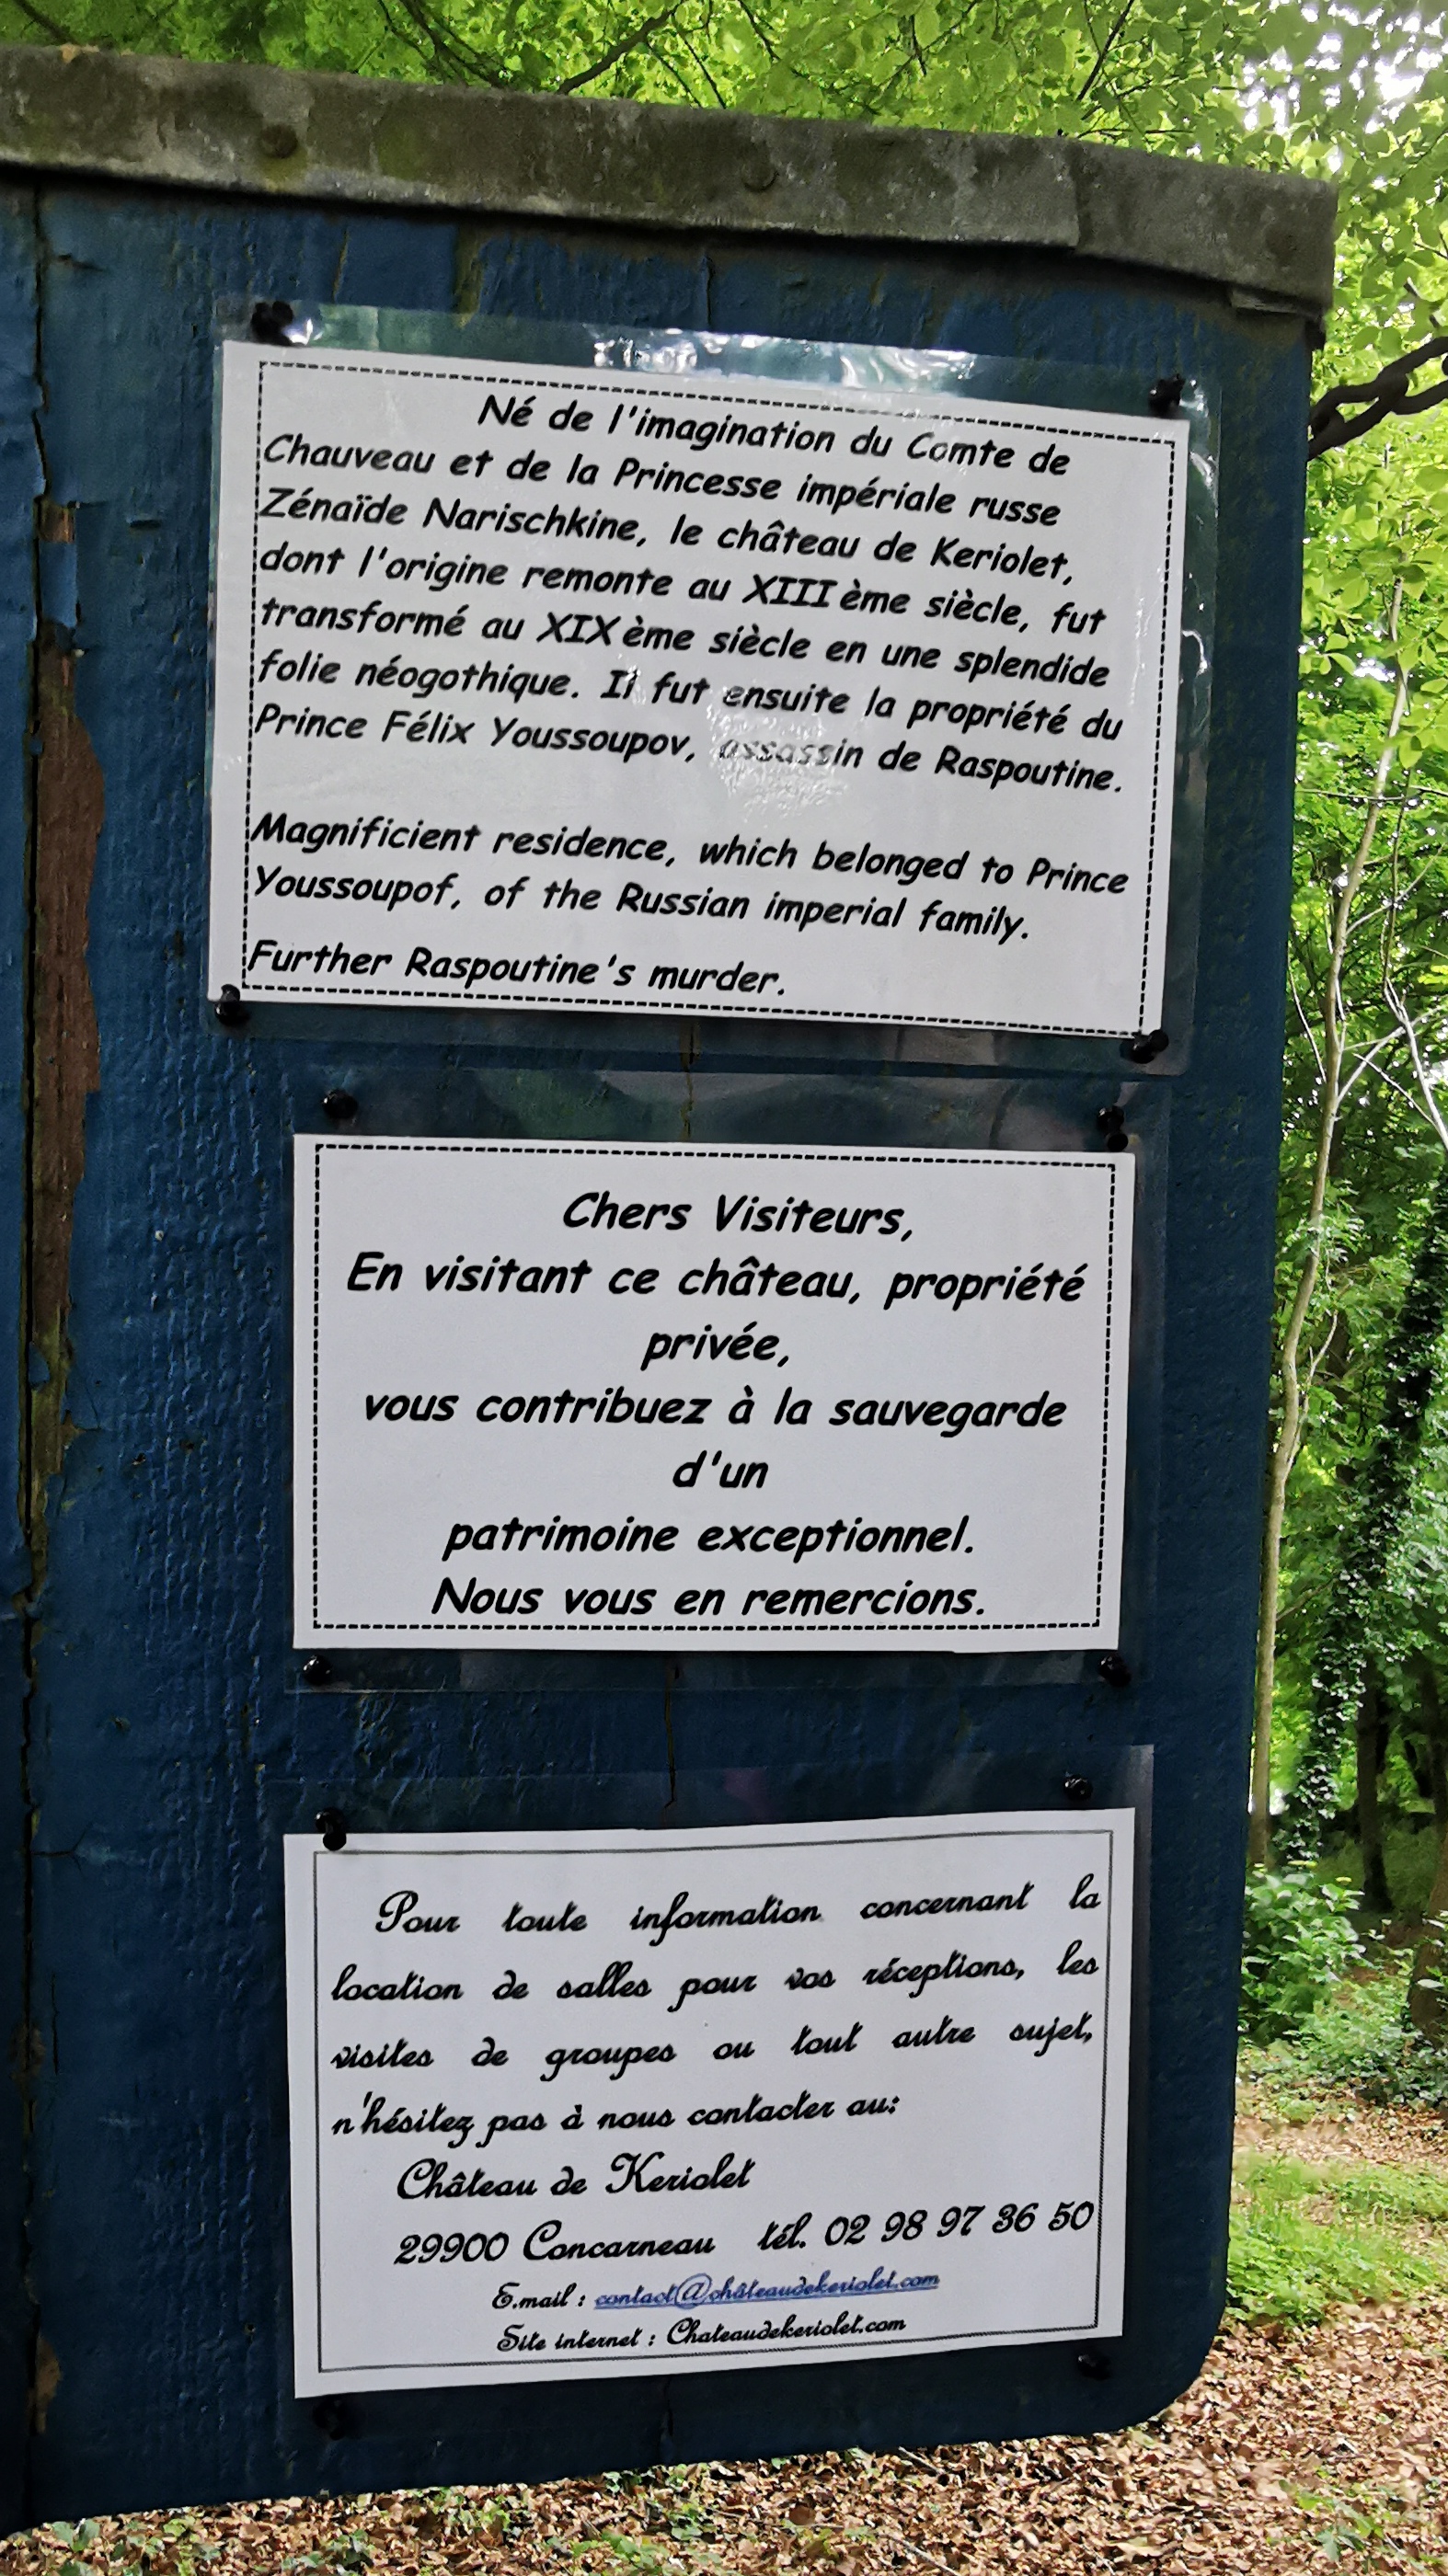 Né de l'imagination du Comte de
Chauveau et de la Princesse impériale russe
Zénaïde Narischkine, le château de Keriolet,
dont l'origine remonte au XIIIème siècle, fut
transformé au XIXème siècle en une splendide
folie néogothique. Il fut ensuite la propriété du
Prince Félix Youssoupov, assassin de Raspoutine.
Magnificient residence, which belonged to Prince
Youssoupof, of the Russian imperial family.
Further Raspoutine's murder.
Chers Visiteurs,
En visitant ce château, propriété
privée,
vous contribuez à la sauvegarde
d'un
patrimoine exceptionnel.
Nous vous en remercions.
Pour toute information concernant la
location de salles pour vos réceptions, les
visites de groupes ou tout autre sujet,
n'hésitez pas à nous contacter au:
Château de Keriolet
29900 Concarneau tél. 02 98 97 36 50
E.mail : contact@châteaudekeriolet.com
Site internet : Chateaudekeriolet.com